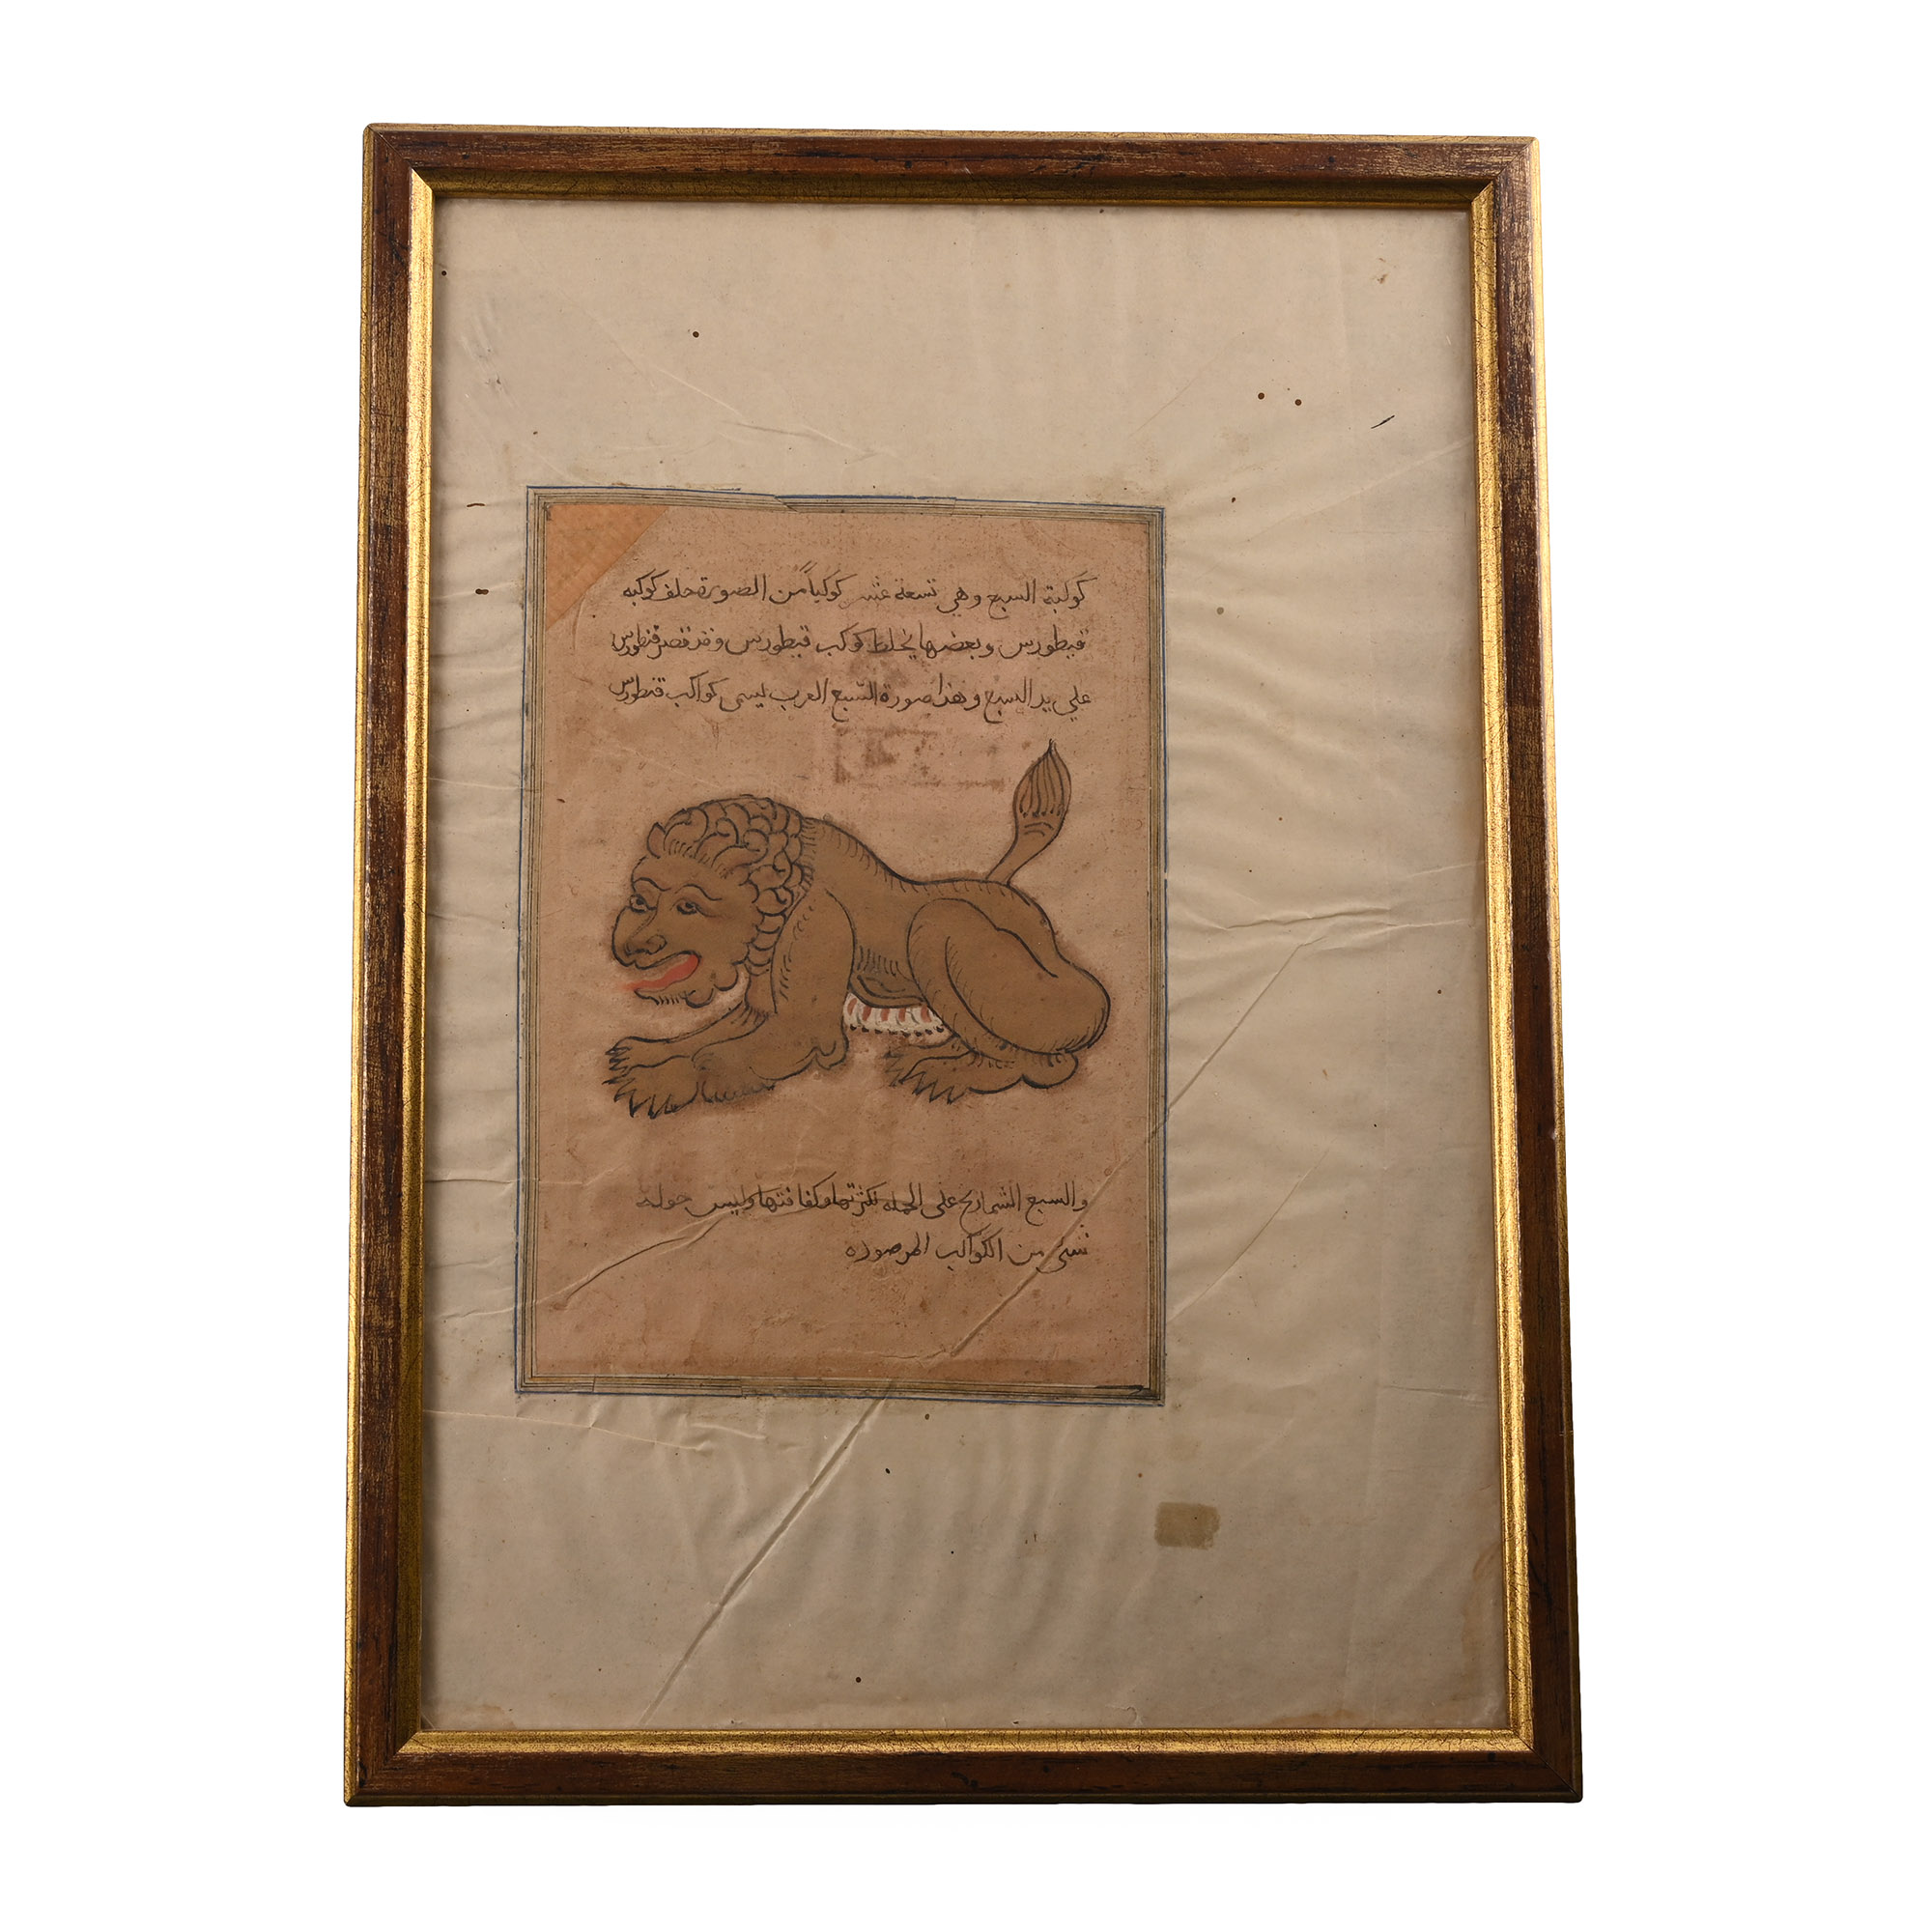 كوكبة السبع وهي تسعة عشر كوكباً من الصورة خلف كوكبه
قيطورس وبعضها يخلط كوكب قيطورس وقد قنطورس
علي يد السبع وهذا صورة السبع العرب ليسمى كواكب قنطورس
والسبع الشماريخ على الجمله لكثرتها وكفافتها وليس حوله
شئ من الكواكب المرصوده